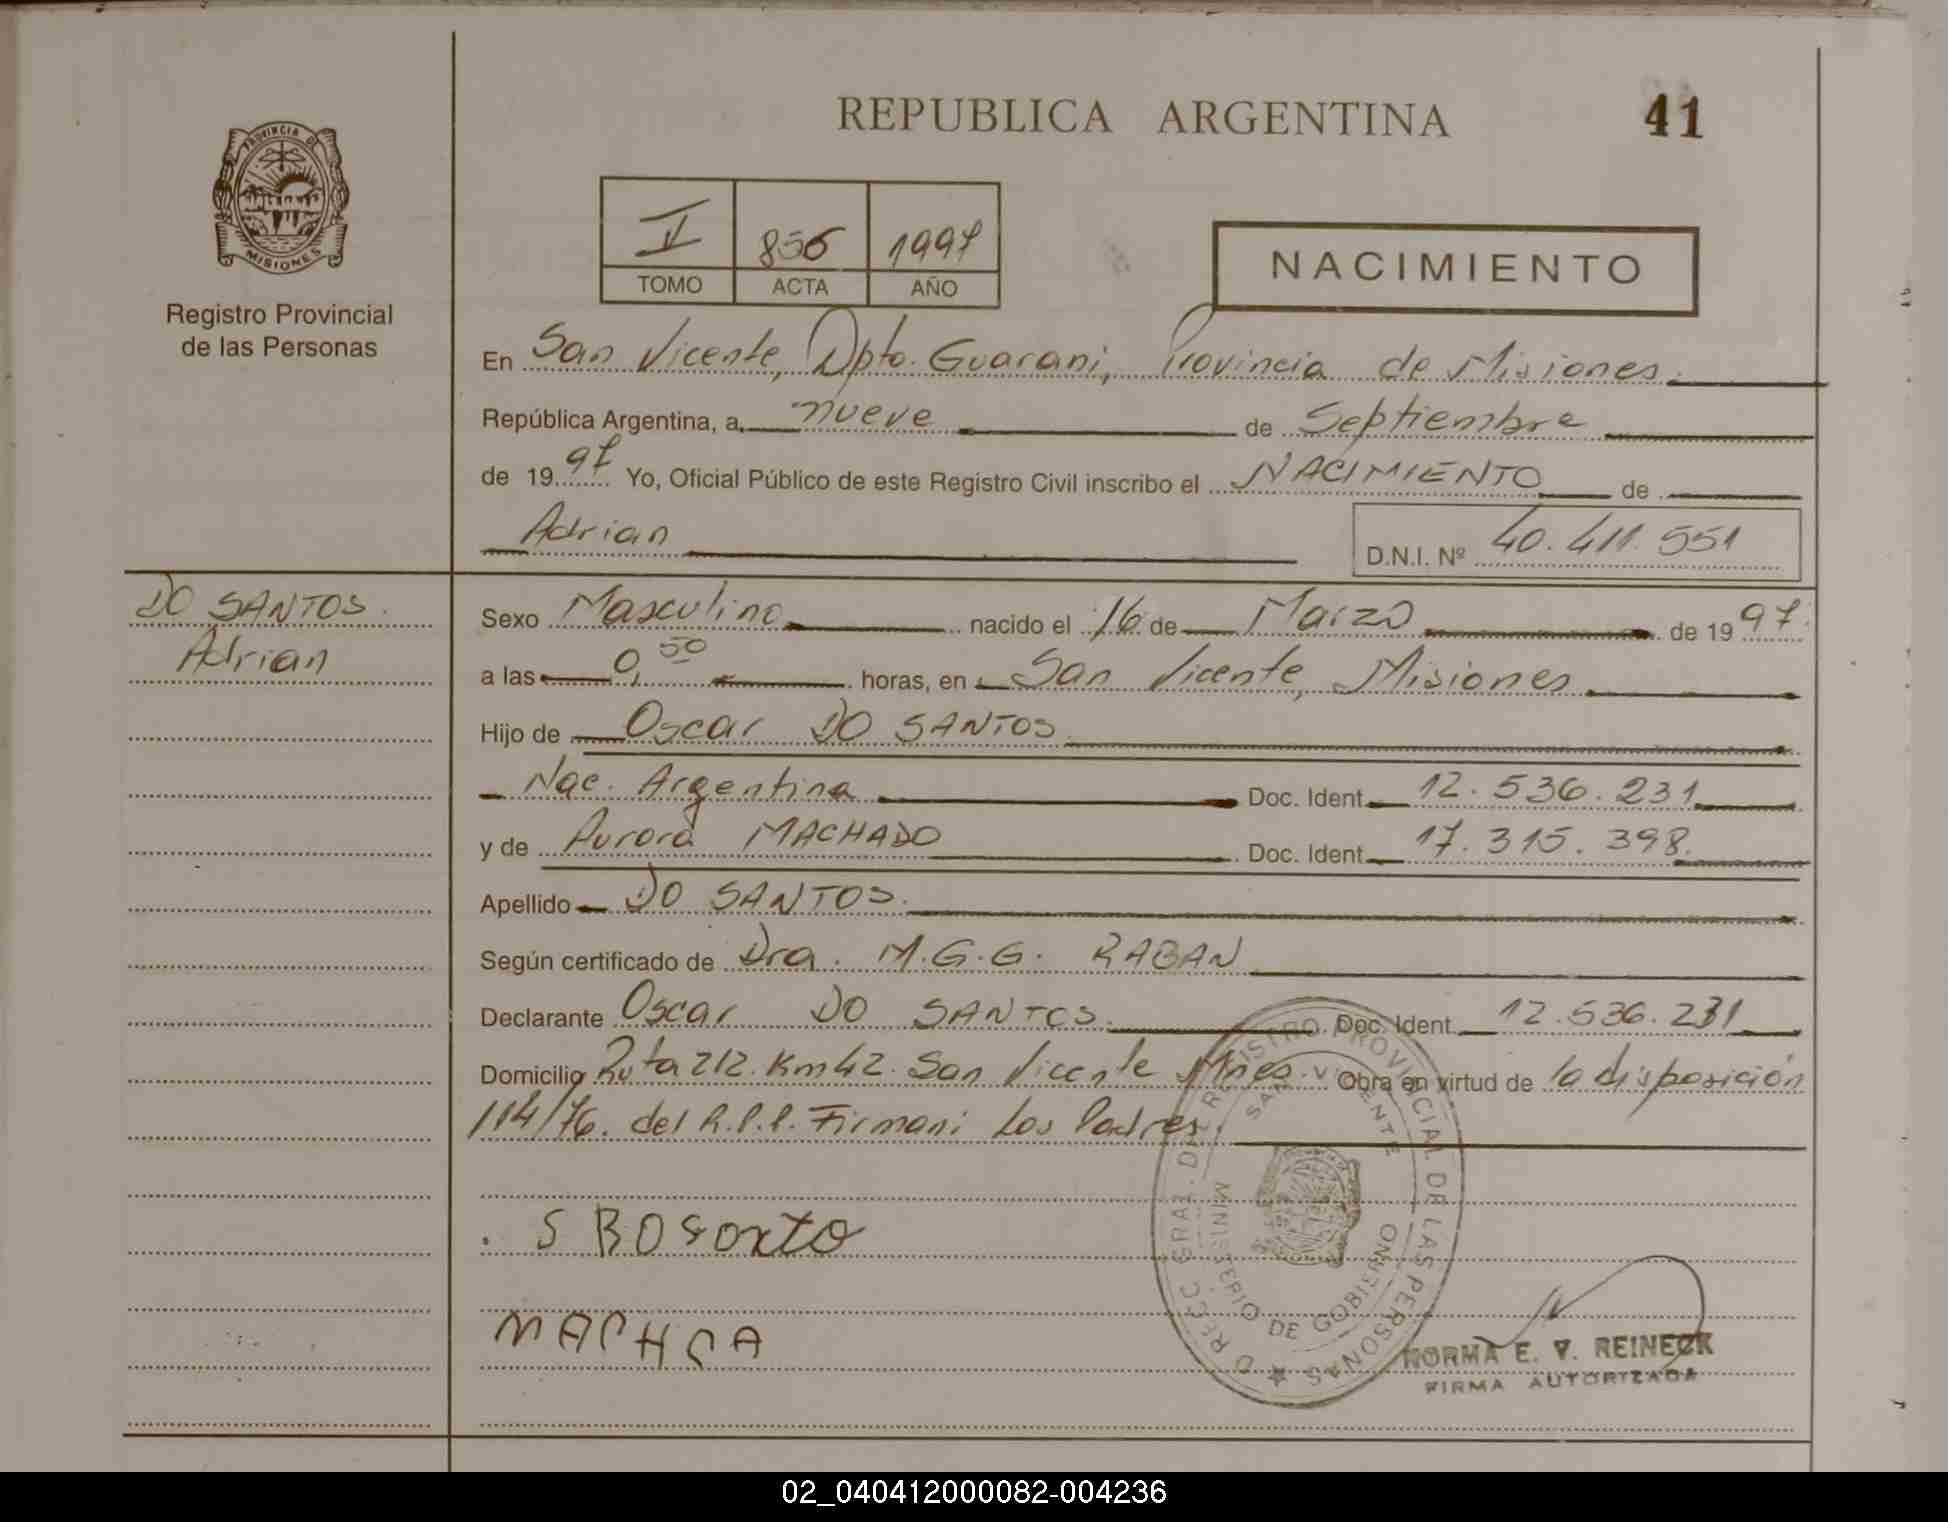 REPUBLICA ARGENTINA
41
PROVINCIA DE
MISIONES
Registro Provincial
de las Personas
II 856 1997
TOMO ACTA AÑO
NACIMIENTO
En San Vicente, Dpto. Guarani, Provincia de Misiones.
República Argentina, a nueve de Septiembre
de 1997 Yo, Oficial Público de este Registro Civil inscribo el NACIMIENTO de
Adrian
D.N.I. Nº 40.411.551
DO SANTOS.
Adrian
Sexo Masculino nacido el 16 de Marzo de 1997.
a las 0,50 horas, en San Vicente, Misiones
Hijo de Oscar DO SANTOS
Nac. Argentina Doc. Ident 12.536.231
y de Aurora MACHADO Doc. Ident 17.315.398.
Apellido DO SANTOS.
Según certificado de Dra. M.G.G. RABAN
Declarante Oscar DO SANTOS. Doc. Ident 12.536.231
Domicilio Ruta 212. Km 42. San Vicente Mnes. Obra en virtud de la disposición
114/76. del R.P.P. Firmani Los Padres.
DIRECC GRAL. DEL REGISTRO PROVINCIAL DE LAS PERSONAS
SAN VICENTE
MINISTERIO DE GOBIERNO
MACHCA
NORMA E. V. REINECK
FIRMA AUTORIZADA
02_040412000082-004236